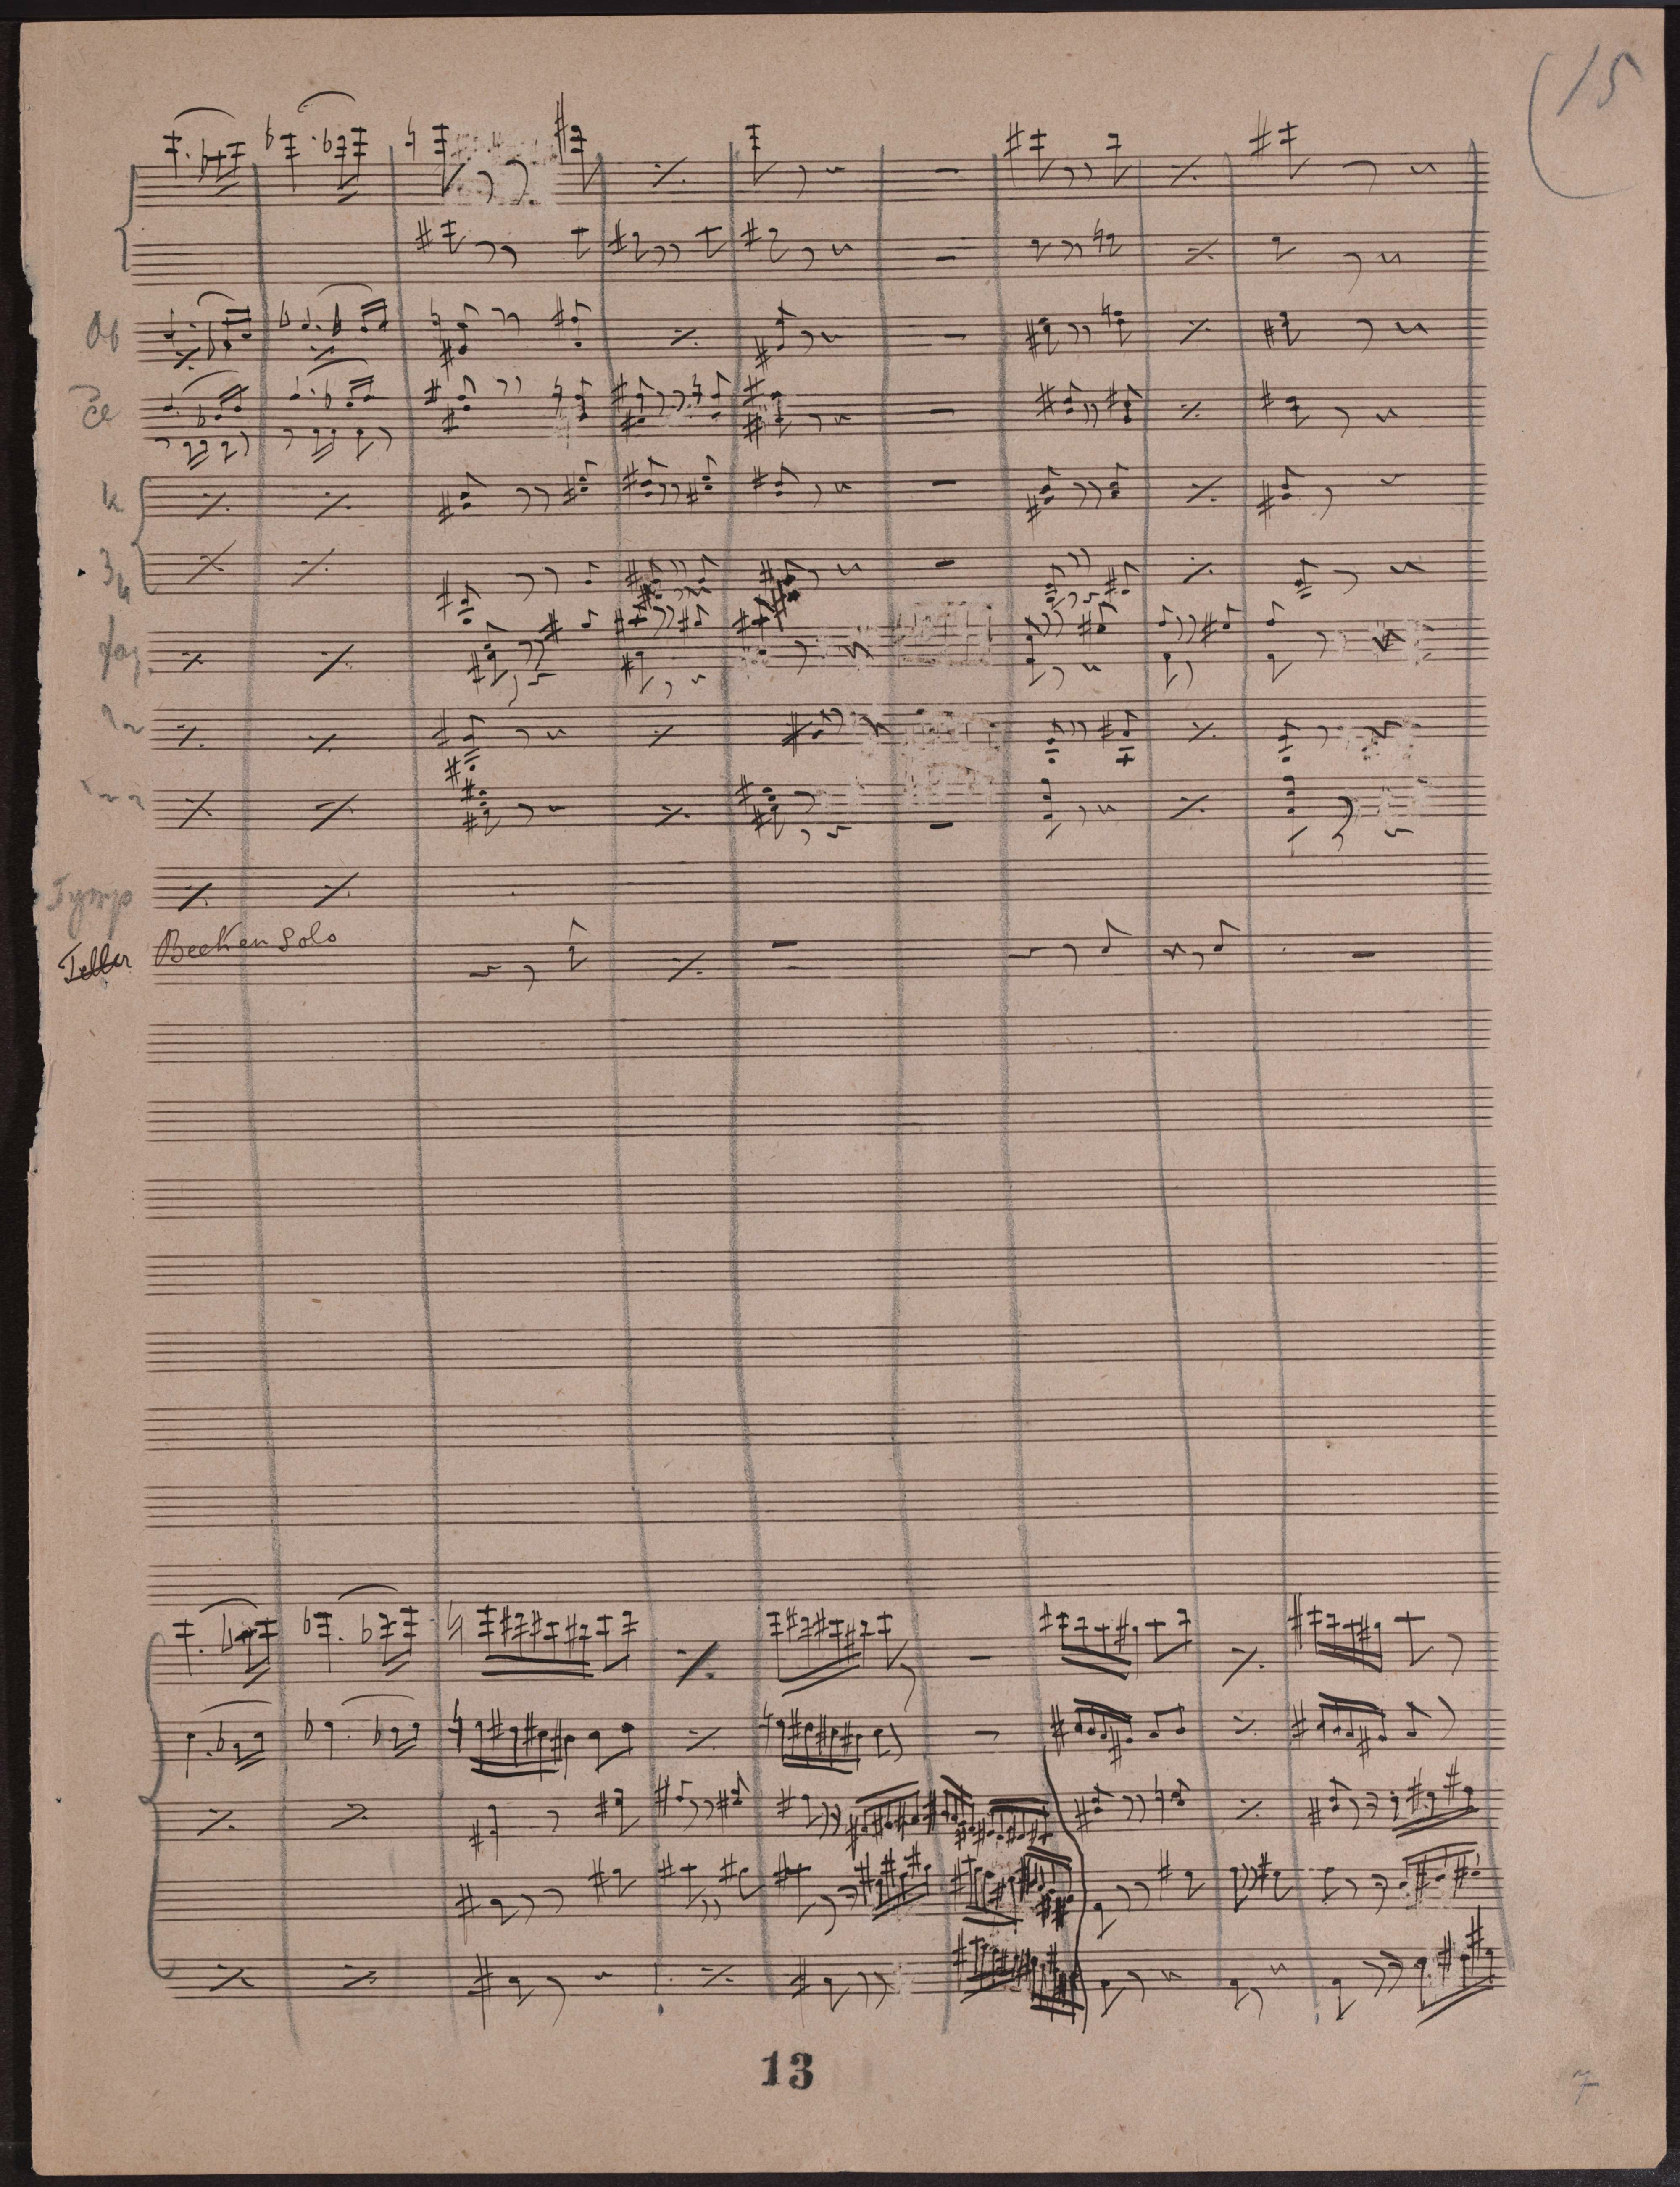 15
Ob
Cl
Fag.
Tymp
Teller Becken Solo
13
7